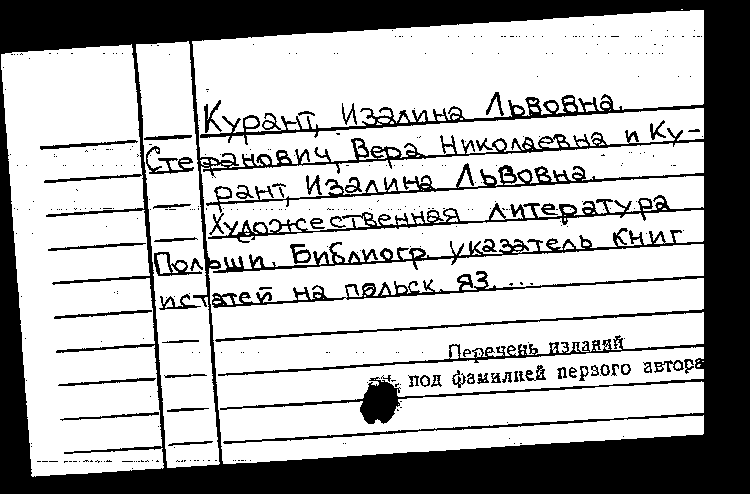 Курант, Изалина Львовна.
Стефанович, Вера Николаевна и Ку-
рант, Изалина Львовна.
Художественная литература
Польши. Библиогр. указатель книг
и статей на польск. яз. ...
Перечень изданий
под фамилией первого автора